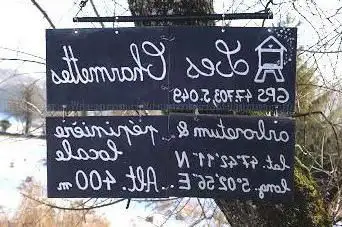 Les Charmettes
GPS 47.703,5.049
arboretum & pépinière
locale
lat. 47°42'11" N
long. 5°02'56" E ...Alt. 400 m